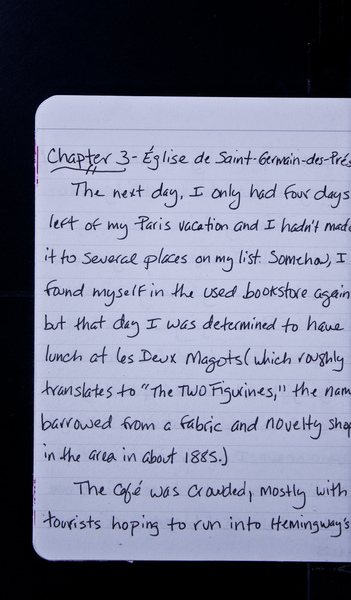 Chapter 3 - Église de Saint-Germain-des-Prés
The next day, I only had four days
left of my Paris vacation and I hadn't made
it to several places on my list. Somehow, I
found myself in the used bookstore again
but that day I was determined to have
lunch at les Deux Magots (which roughly
translates to "The Two Figurines," the nam
barrowed from a fabric and novelty shop
in the area in about 1885.)
The café was crowded, mostly with
tourists hoping to run into Hemingway's